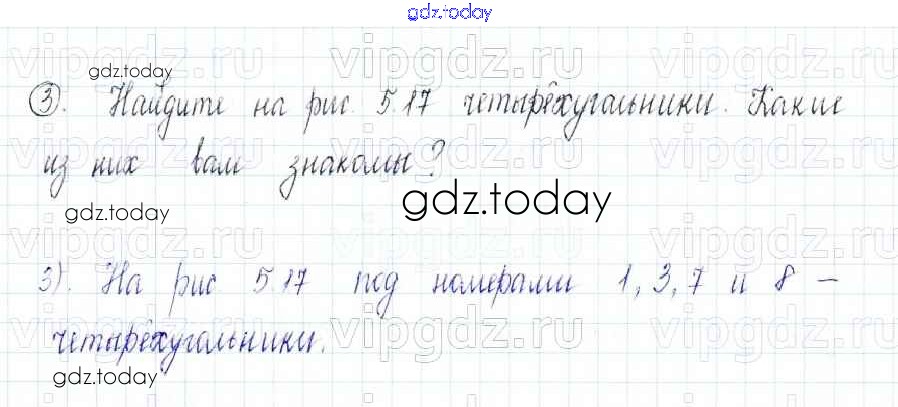 gdz.today
vipgdz.ru vipgdz.ru vipgdz.ru
gdz.today
3. Найдите на рис. 5.17 четырёхугольники. Какие
vipgdz.ru vipgdz.ru vipgdz.ru
из них вам знакомы?
gdz.today gdz.today
vipgdz.ru vipgdz.ru vipgdz.ru
3). На рис 5.17 под номерами 1, 3, 7 и 8 –
vipgdz.ru vipgdz.ru vipgdz.ru
четырёхугольники.
gdz.today